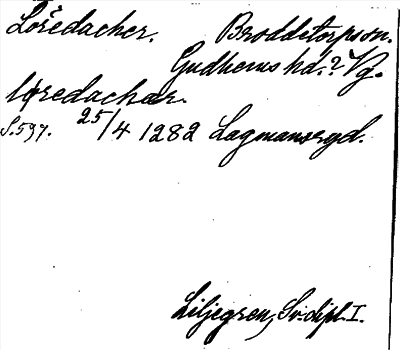 Löredacher. Broddetorpson.
Gudhems hd.? Vg.
løredachær.
S. 597. 25/4 1282 Lagmansryd.
Liljegren, Sv. dipl. I.